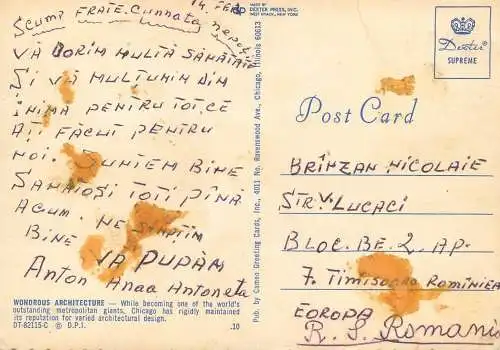 14. FEB
MADE BY
DEXTER PRESS, INC.
WEST NYACK, NEW YORK
SCUMP FRATE. Cunnata nepoții
VĂ DORIM MULTĂ SĂNĂTATE
ȘI VĂ MULTUMIM DIN
INIMA PENTRU TOT CE
AȚI FĂCUT PENTRU
NOI. SUNTEM BINE
SĂNĂTOȘI TOȚI PÎNĂ
ACUM. NE SIMPTIM
BINE VĂ PUPĂM
Anton Anaa Antoneta
WONDROUS ARCHITECTURE — While becoming one of the world's
outstanding metropolitan giants, Chicago has rigidly maintained
its reputation for varied architectural design.
DT-82115-C D.P.I. .10
Pub. by Cameo Greeting Cards, Inc., 4011 No. Ravenswood Ave., Chicago, Illinois 60613
Dexter
SUPREME
Post Card
BRÎNZAN NICOLAIE
STR. V. LUCACI
BLOC. BE. 2. AP.
7. TIMIȘOARA ROMÎNIEA
EOROPA
R. S. Romania